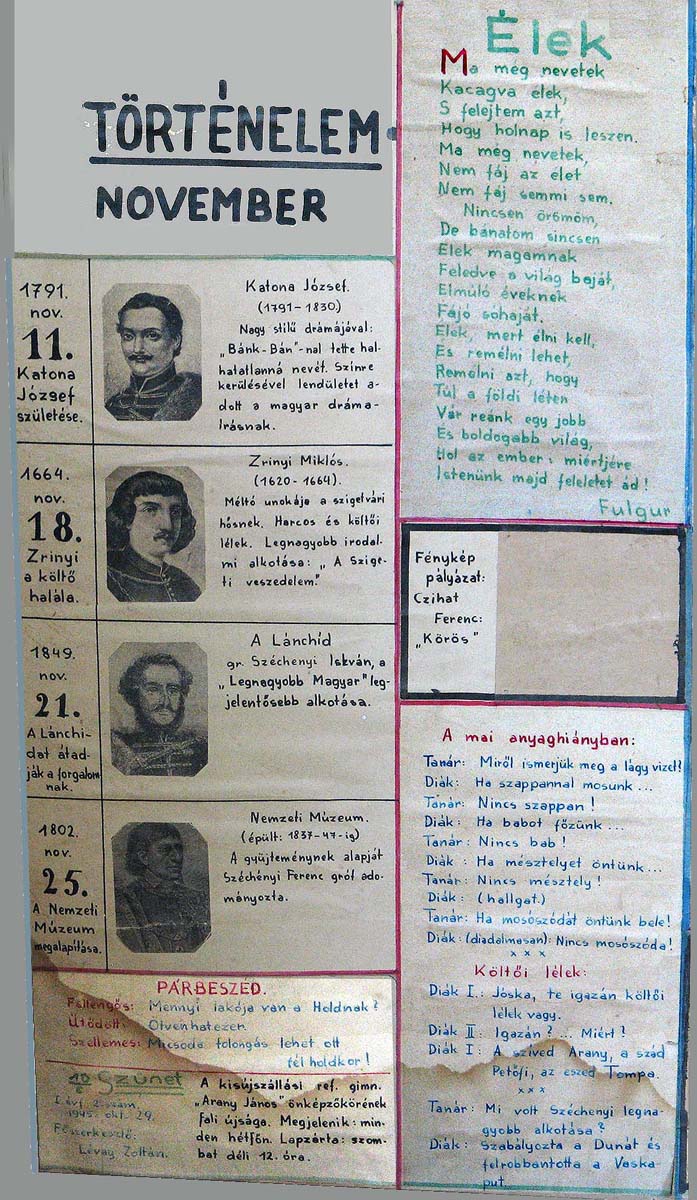 TÖRTÉNELEM-
NOVEMBER
1791.
nov.
11.
Katona
József
születése.
Katona József.
(1791-1830)
Nagy stílű drámájával:
„Bánk-Bán"-nal tette hal-
hatatlanná nevét. Színre
kerülésével lendületet a-
dott a magyar dráma-
írásnak.
1664.
nov.
18.
Zrinyi
a költő
halála.
Zrinyi Miklós.
(1620-1664).
Méltó unokája a szigetvári
hősnek. Harcos és költői
lélek. Legnagyobb irodal-
mi alkotása: „A Szige-
ti veszedelem."
1849.
nov.
21.
A Lánchi-
dat átad-
ják a forgalom-
nak.
A Lánchíd
gr. Széchenyi István, a
„Legnagyobb Magyar" leg-
jelentősebb alkotása.
1802.
nov.
25.
A Nemzeti
Múzeum
megalapítása.
Nemzeti Múzeum.
(épült: 1837-47-ig)
A gyüjteménynek alapját
Széchényi Ferenc gróf ado-
mányozta.
PÁRBESZÉD.
Fellengős: Mennyi lakója van a Holdnak?
Ütődött: Ötvenhatezer.
Szellemes: Micsoda tolongás lehet ott
fél holdkor!
10 Szünet
I. évf. 2. szám.
1945. okt. 29.
Főszerkesztő:
Lévay Zoltán.
A kisújszállási ref. gimn.
„Arany János" önképzőkörének
fali újsága. Megjelenik: min-
den hétfőn. Lapzárta: szom-
bat déli 12. óra.
Élek
Ma még nevetek
Kacagva élek,
S felejtem azt,
Hogy holnap is leszen.
Ma még nevetek,
Nem fáj az élet
Nem fáj semmi sem.
Nincsen örömöm,
De bánatom sincsen
Élek magamnak
Feledve a világ baját,
Elmúló éveknek
Fájó sohaját.
Élek, mert élni kell,
És remélni lehet,
Remélni azt, hogy
Túl a földi léten
Vár reánk egy jobb
És boldogabb világ,
Hol az ember: miértjére
Istenünk majd feleletet ád!
Fulgur
Fénykép
pályázat:
Czihat
Ferenc:
„Körös"
A mai anyaghiányban:
Tanár: Miről ismerjük meg a lágy vizet?
Diák: Ha szappannal mosunk...
Tanár: Nincs szappan!
Diák: Ha babot főzünk...
Tanár: Nincs bab!
Diák: Ha mésztelyet öntünk...
Tanár: Nincs mésztely!
Diák: (hallgat.)
Tanár: Ha mosószódát öntünk bele!
Diák: (diadalmasan): Nincs mosószóda!
x x x
Költői lélek:
Diák I.: Jóska, te igazán költői
lélek vagy.
Diák II: Igazán? ... Miért!
Diák I: A szíved Arany, a szád
Petőfi, az eszed Tompa.
x x x
Tanár: Mi volt Széchenyi legna-
gyobb alkotása?
Diák: Szabályozta a Dunát és
felrobbantotta a Vaska-
put.